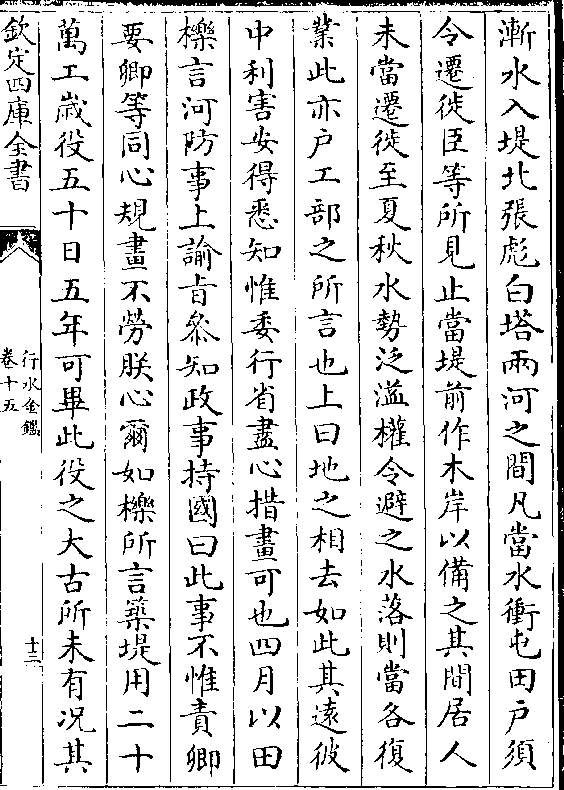 漸水入堤北張彪白塔兩河之間凡當水衝屯田戶須
令遷徙臣等所見止當堤前作木岸以備之其間居人
未當遷徙至夏秋水勢泛溢權令避之水落則當各復
業此亦戶工部之所言也上曰地之相去如此其遠彼
中利害安得悉知惟委行省盡心措畫可也四月以田
櫟言河防事上諭旨叅知政事持國曰此事不惟責卿
要卿等同心規畫不勞朕心爾如櫟所言築堤用二十
萬工歲役五十日五年可畢此役之大古所未有况其
欽定四庫全書
行水金鑑
卷十五
十三